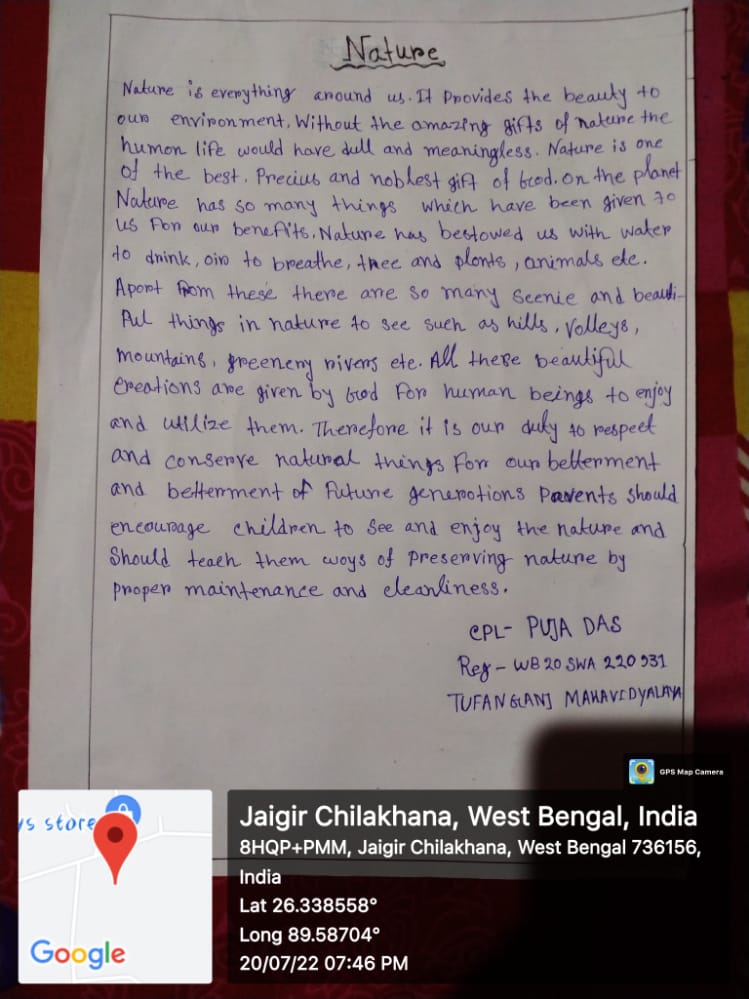 Nature
Nature is everything around us. It Provides the beauty to
our environment. Without the amazing gifts of nature the
human life would have dull and meaningless. Nature is one
of the best. Precius and noblest gift of God. On the planet
Nature has so many things which have been given to
us for our benefits. Nature has bestowed us with water
to drink, air to breathe, tree and plants, animals etc.
Apart from these there are so many Scenie and beauti-
ful things in nature to see such as hills, Valleys,
mountains, greenery rivers etc. All these beautiful
Creations are given by God For human beings to enjoy
and utilize them. Therefore it is our duty to respect
and conserve natural things For our betterment
and betterment of Future generations Parents should
encourage children to see and enjoy the nature and
Should teach them ways of Preserving nature by
Proper maintenance and cleanliness.
CPL- PUJA DAS
Reg - WB 20 SWA 220931
TUFANGANJ MAHAVIDYALAYA
GPS Map Camera
ys store
Google
Jaigir Chilakhana, West Bengal, India
8HQP+PMM, Jaigir Chilakhana, West Bengal 736156,
India
Lat 26.338558°
Long 89.58704°
20/07/22 07:46 PM